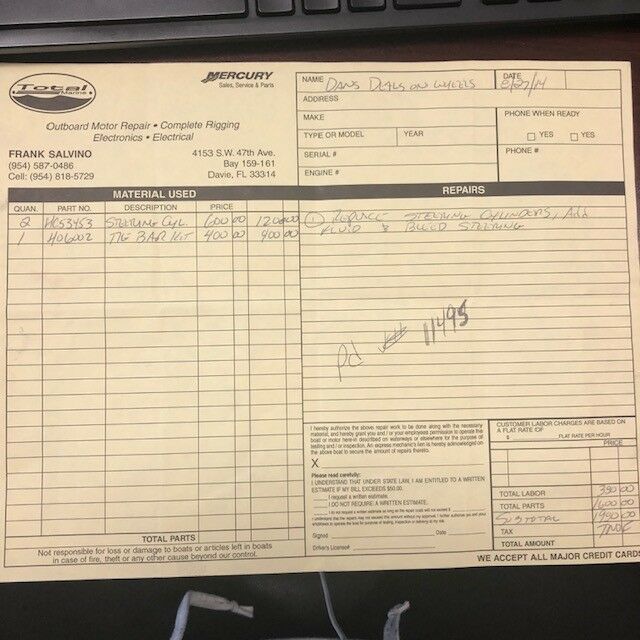 Total
Marine
MERCURY
Sales, Service & Parts
Outboard Motor Repair • Complete Rigging
Electronics • Electrical
FRANK SALVINO
(954) 587-0486
Cell: (954) 818-5729
4153 S.W. 47th Ave.
Bay 159-161
Davie, FL 33314
NAME DANS DEALS ON WHEELS
DATE 8/27/14
ADDRESS
MAKE
PHONE WHEN READY
TYPE OR MODEL YEAR
YES YES
SERIAL #
PHONE #
ENGINE #
MATERIAL USED REPAIRS
QUAN. PART NO. DESCRIPTION PRICE
2 HC53453 STEERING CYL. 600 00 1200 00
1 HO6002 TIE BAR KIT 400 00 400 00
① REPLACE STEERING CYLINDERS, ADD
FLUID & BLEED STEERING
Pd # 11495
I hereby authorize the above repair work to be done along with the necessary
material, and hereby grant you and / or your employees permission to operate the
boat or motor herein described on waterways or elsewhere for the purpose of
testing and / or inspection. An express mechanic's lien is hereby acknowledged on
the above boat to secure the amount of repairs thereto.
X
Please read carefully:
I UNDERSTAND THAT UNDER STATE LAW, I AM ENTITLED TO A WRITTEN
ESTIMATE IF MY BILL EXCEEDS $50.00.
I request a written estimate.
I DO NOT REQUIRE A WRITTEN ESTIMATE.
I do not request a written estimate as long as the repair costs will not exceed $
Signed Date
Drivers License#
CUSTOMER LABOR CHARGES ARE BASED ON
A FLAT RATE OF
$ FLAT RATE PER HOUR
PRICE
TOTAL LABOR 300.00
TOTAL PARTS 1600.00
SUBTOTAL 1900.00
TAX
TOTAL AMOUNT
TOTAL PARTS
Not responsible for loss or damage to boats or articles left in boats
in case of fire, theft or any other cause beyond our control.
WE ACCEPT ALL MAJOR CREDIT CARDS